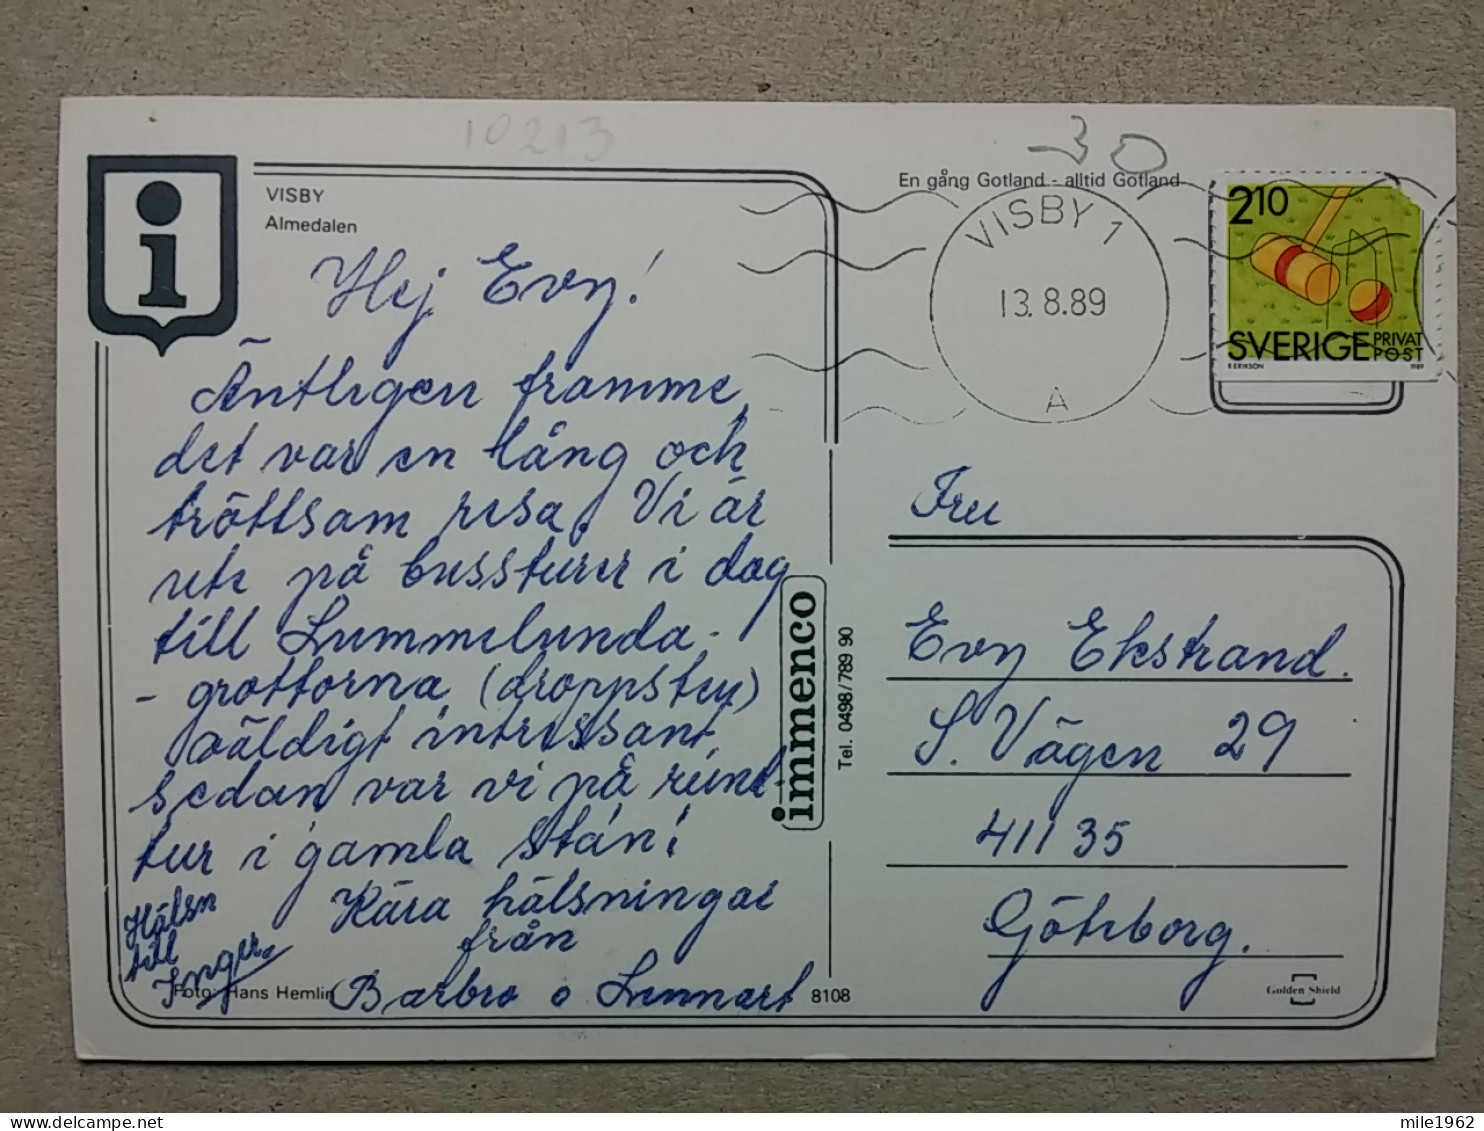 10213
30
i
VISBY
Almedalen
En gång Gotland - alltid Gotland
VISBY 1
13.8.89
A
210
SVERIGE PRIVAT
POST
R ERIKSON 1989
Hej Evy!
Äntligen framme,
det var en lång och
tröttsam resa. Vi är
ute på bussturer i dag
till Lummelunda-
-grottorna (droppsten)
väldigt intressant,
sedan var vi på rund-
tur i gamla stán!
Kära hälsningar
från
Barbro o Lennart
Hälsn
till
Inger.
Foto: Hans Hemlin
8108
immenco
Tel. 0498/789 90
Fru
Evy Ekstrand.
S. Vägen 29
411 35
Göteborg.
Golden Shield
mile1962